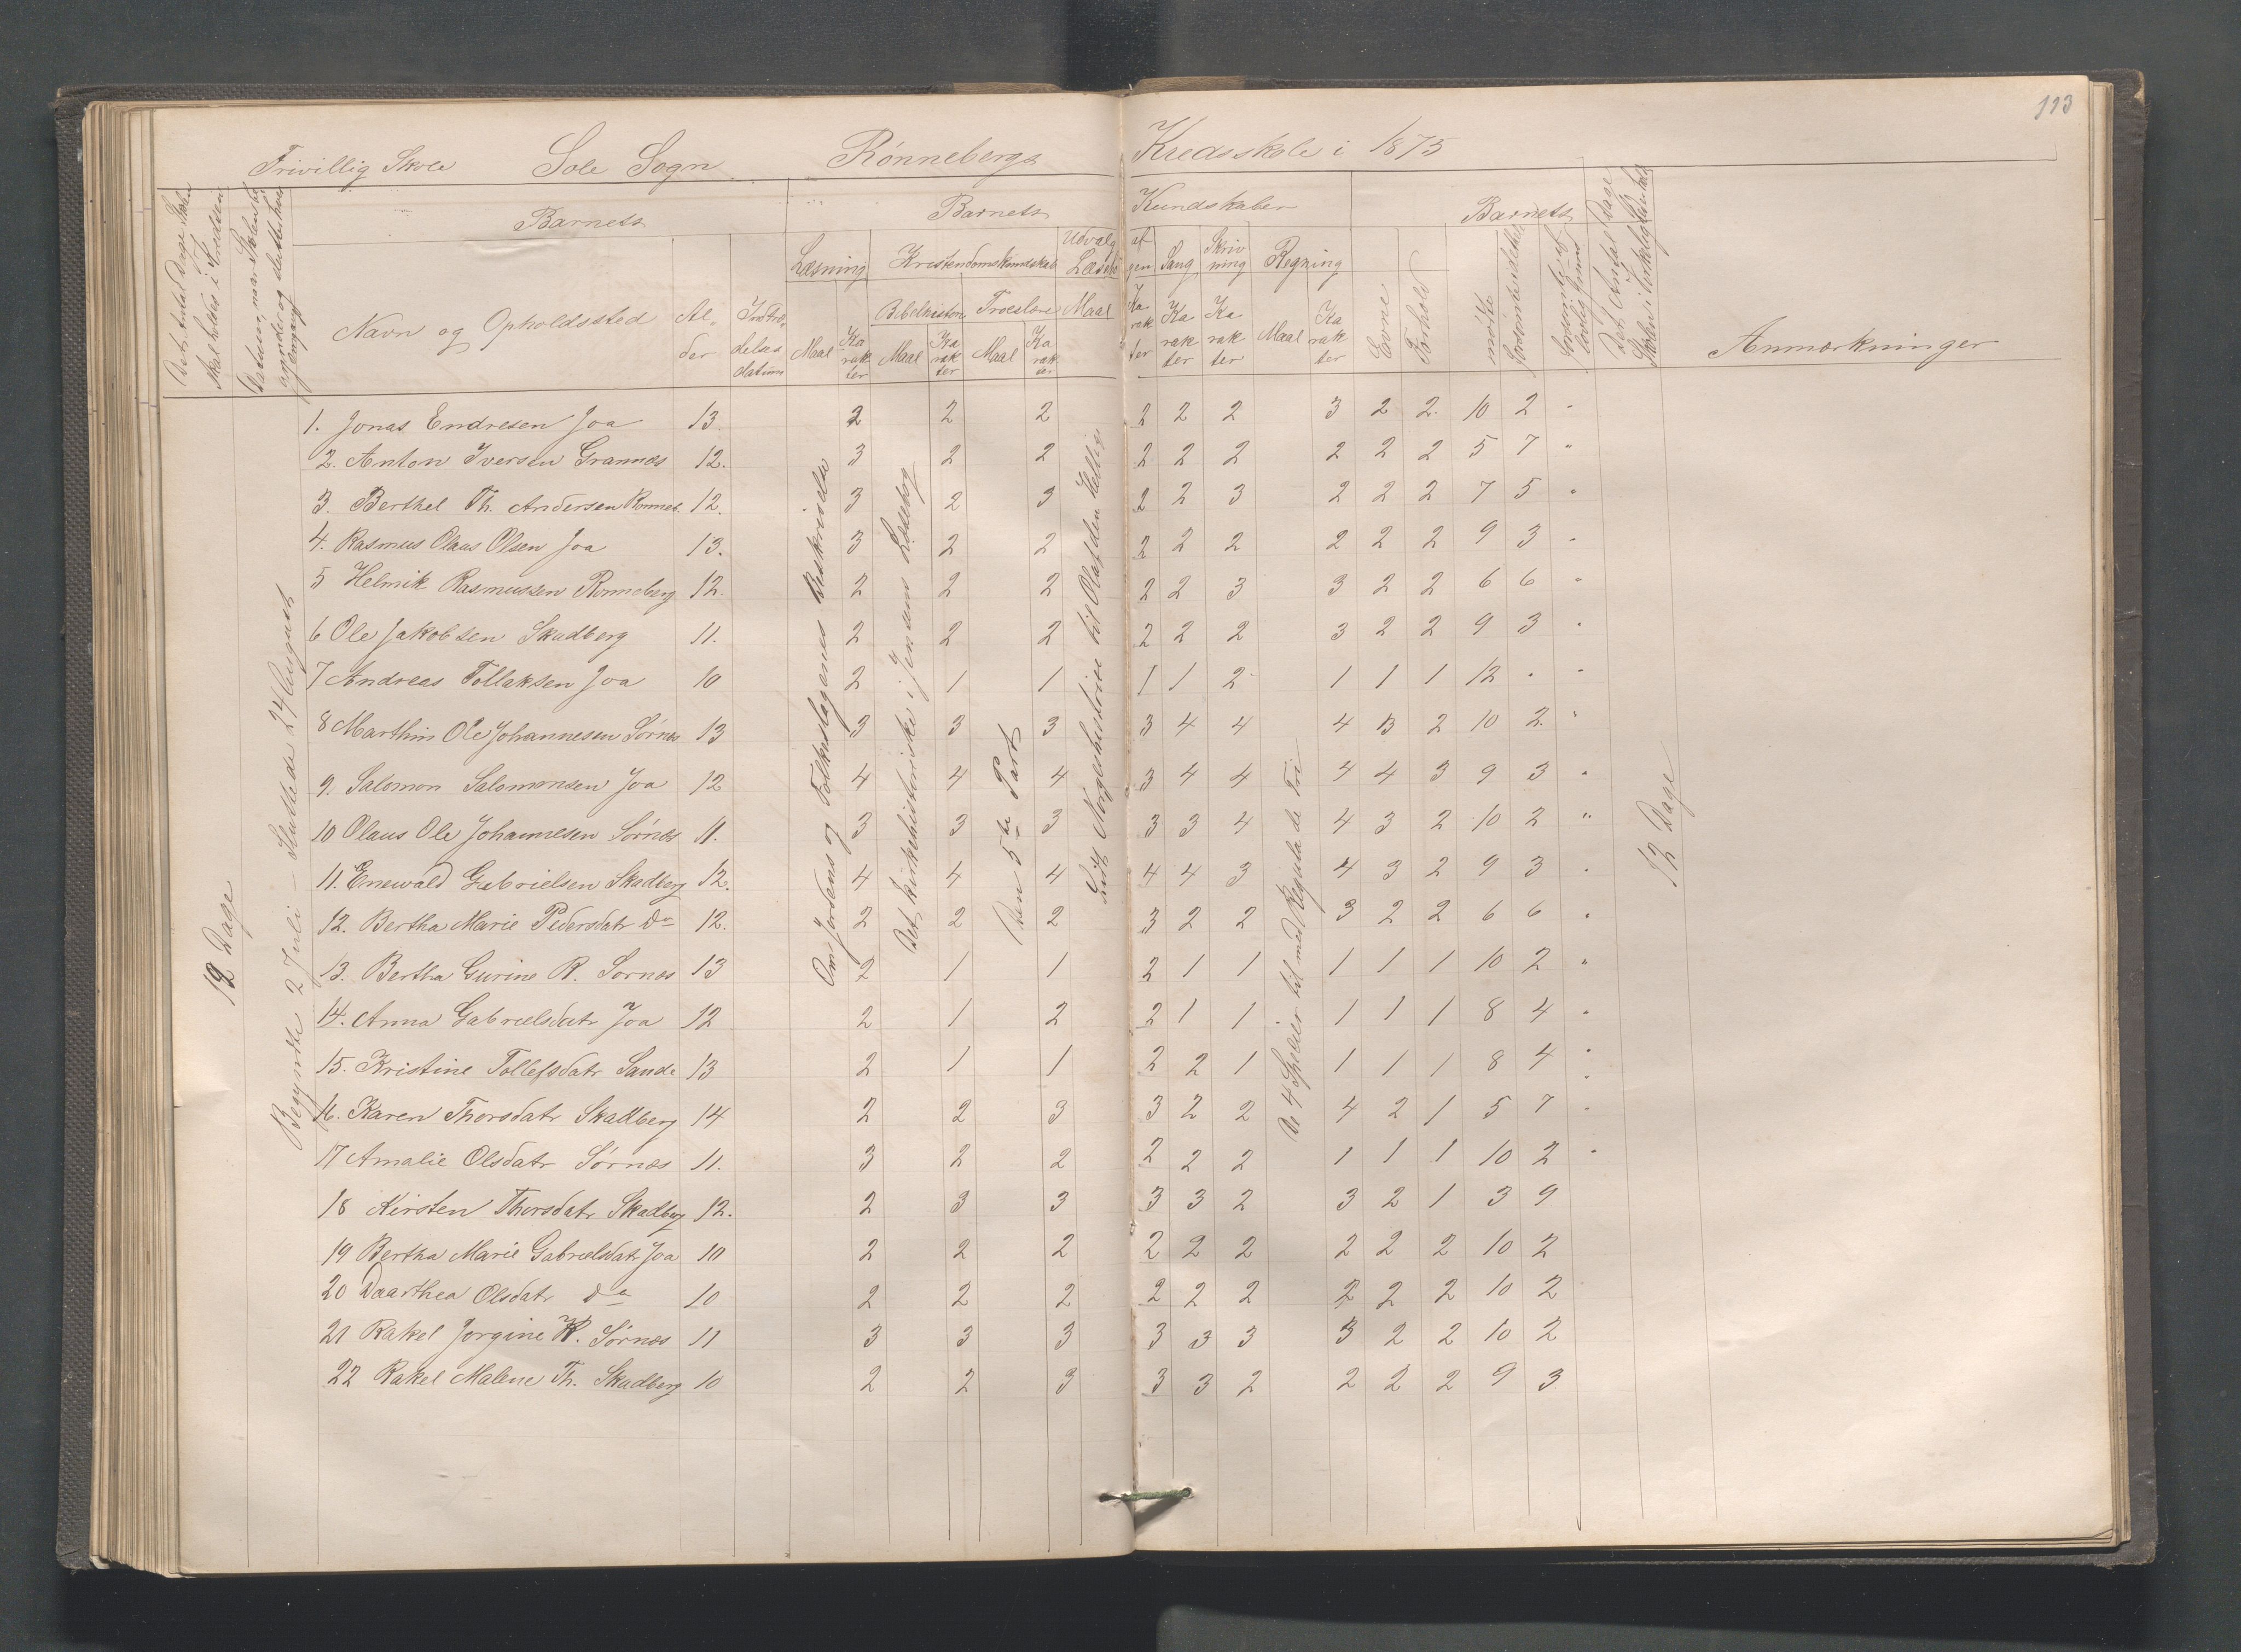 113
Frivillig Skole Sole Sogn Rönnebergs Kredsskole i 1875
Det Antal Dage Skolen skal holdes i Kredsen
Datum, naar Skolen begynder og slutter hver Omgang
Barnets
Navn og Opholdssted
Al-
der
Indtræ-
delses
datum
Barnets Kundskaber
Læsning
Maal
Ka
rak
ter
Kristendomskundskab
Bibelhistorie
Maal
Ka
rak
ter
Troeslære
Maal
Ka
rak
ter
Udvalg af
Læsebogen
Maal
Ka
rak
ter
Sang
Ka
rak
ter
Skriv
ning
Ka
rak
ter
Regning
Maal
Ka
rak
ter
Barnets
Evne
Forhold
mødte
forsømte
Det Antal Dage
Skolen i Virkelighed er holdt
Anmærkninger
12 Dage
Begyndte 2 Juli – Sluttede 24 August
Om Jordens og Folkeslagenes Beskrivelse
Det kirkehistoriske i Jensens Læsebog
Den 5te Part
Lidt Norgeshistorie til Olaf den Hellige
De 4 Specier til med Regula de Tri
12 Dage
1. Jonas Endresen Joa 13. 2 2 2 2 2 2 3 2 2. 10 2 "
2. Anton Iversen Grannes 12. 3 2 2 2 2 2 2 2 2 5 7 "
3. Berthel Th. Andersen Ronneb. 12. 3 2 3 2 2 3 2 2 2 7 5 "
4. Rasmus Olaus Olsen Joa 13. 3 2 2 2 2 2 2 2 2 9 3 "
5 Helmik Rasmussen Ronneberg 12. 2 2 2 2 2 3 3 2 2 6 6 "
6 Ole Jakobsen Skadberg 11. 2 2 2 2 2 2 3 2 2 9 3 "
7 Andreas Tollaksen Joa 10 2 1 1 1 1 2 1 1 1 12 " "
8 Marthin Ole Johannesen Sørnes 13 3 3 3 3 4 4 4 3 2 10 2. "
9. Salomon Salomonsen Joa 12 4 4 4 3 4 4 4 4 3 9 3 "
10 Olaus Ole Johannesen Sørnes 11. 3 3 3 3 3 4 4 3 2 10 2 "
11. Enewald Gabrielsen Skadberg 12. 4 4 4 4 4 3 4 3 2 9 3 "
12. Bertha Marie Pedersdatr Do 12. 2 2 2 3 2 2 3 2 2 6 6 "
13. Bertha Gurine R. Sornes 13 2 1 1 2 1 1 1 1 1 10 2 "
14. Anna Gabrielsdatr Joa 12 2 1 2 2 1 1 1 1 1 8 4 "
15. Kristine Tollefsdatr Sande 13 2 1 1 2 2 1 1 1 1 8 4 "
16. Karen Thorsdatr Skadberg 14 2 2 3 3 2 2 4 2 1 5 7 "
17 Amalie Olsdatr Sørnes 11. 3 2 2 2 2 2 1 1 1 10 2 "
18 Kirsten Thorsdatr Skadberg 12. 2 3 3 3 3 2 3 2 1 3 9
19 Bertha Marie Gabrielsdatr Joa 10 2 2 2 2 2 2 2 2 2 10 2
20 Daarthea Olsdatr do 10 2 2 2 2 2 2 2 2 2 10 2
21 Rakel Jorgine K. Sørnes 11 3 3 3 3 3 3 3 2 2 10 2
22 Rakel Malene Th. Skadberg 10 2 2 3 3 3 2 2 2 2 9 3